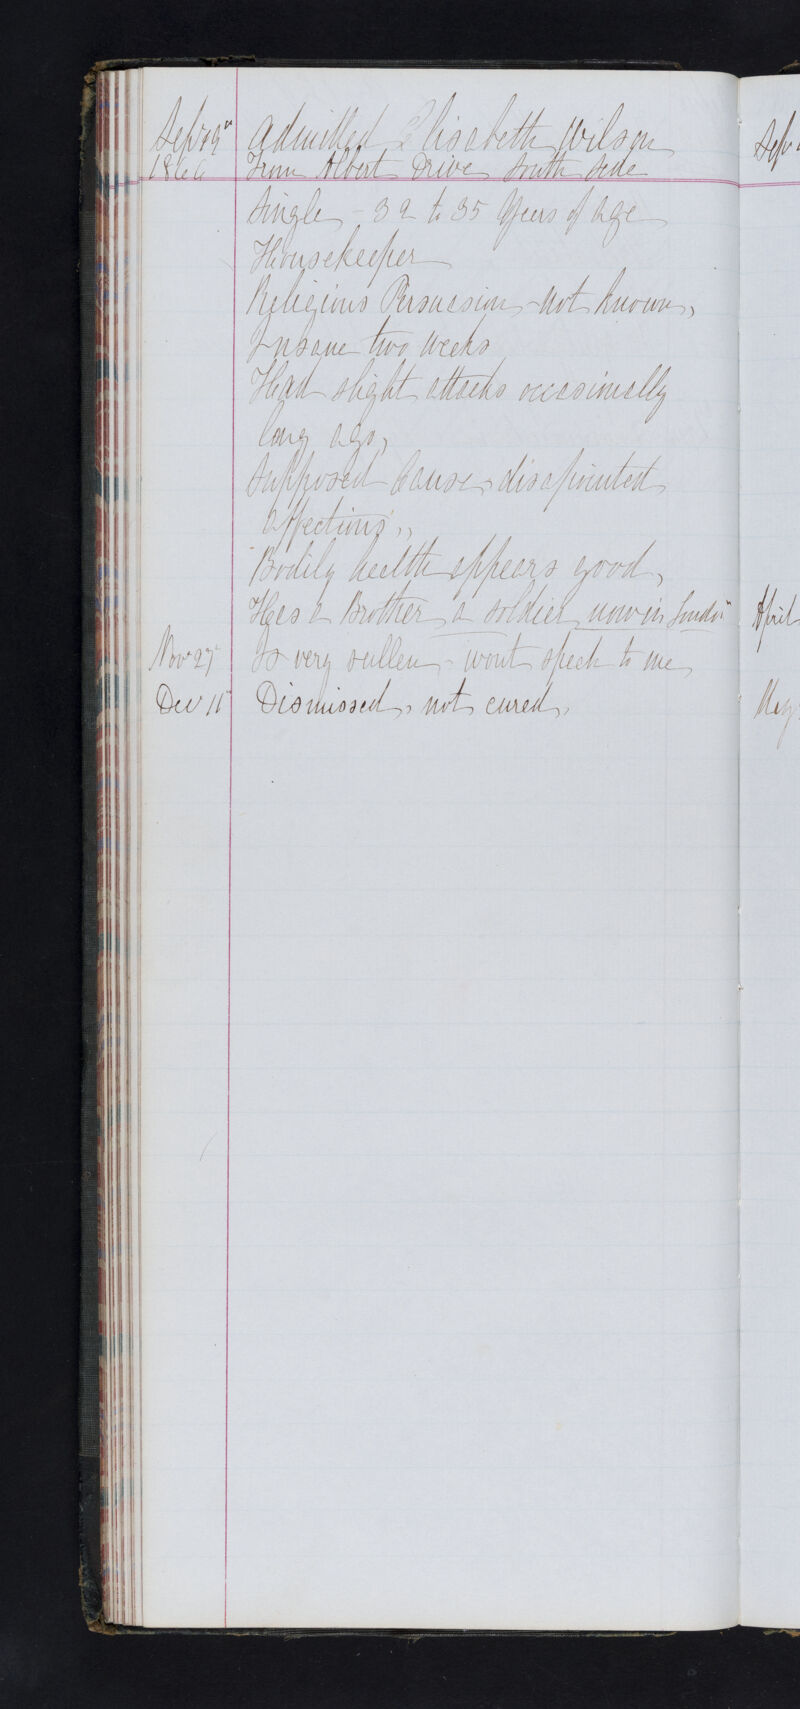 Sept 19th Admitted Elisabeth Wilson
1866 From Albert Drive South side
Single - 32 to 35 Years of age
Housekeeper
Religious Persuasion - not known,
Insane two weeks
Had slight attacks occasionally
long ago,
Supposed Cause, disapointed
affections,,
Bodily health appears good,
Has a Brother a soldier now in London
Nov 27th Is very sullen - wont speek to me
Dec 11th Dismissed, not cured,
Sep
April
May